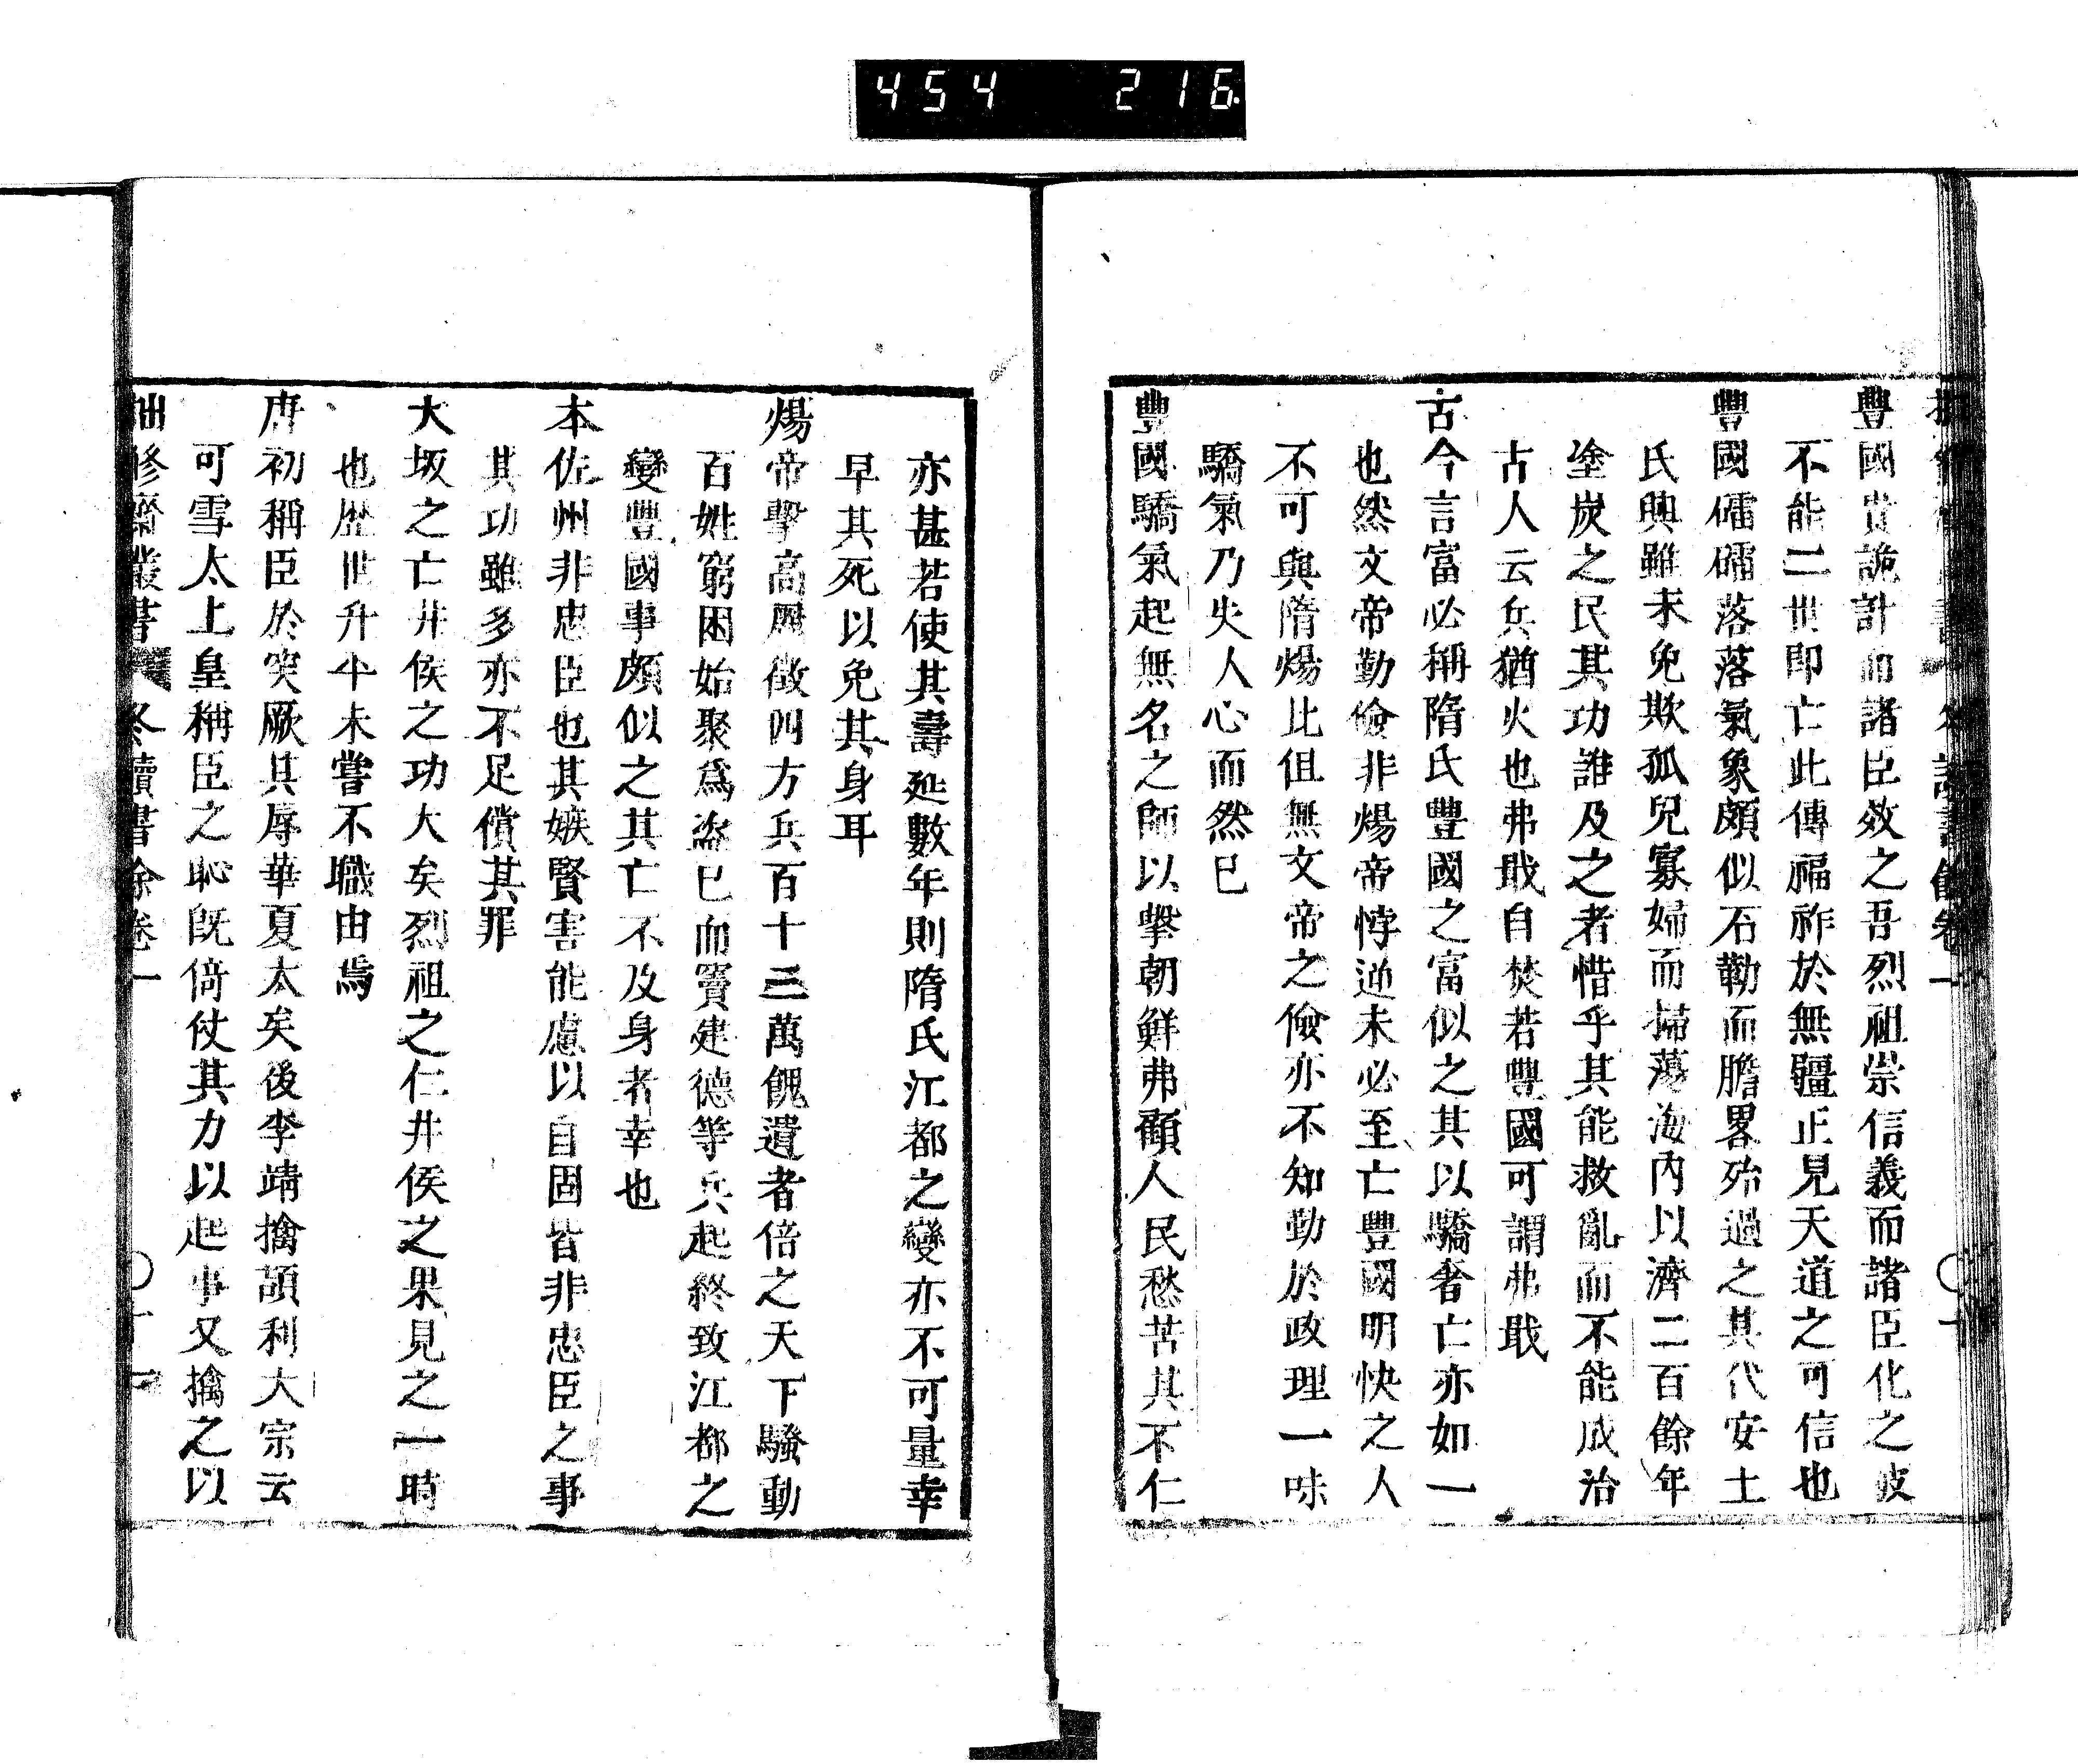 454 216
豐國貴詭計而諸臣效之吾烈祖崇信義而諸臣化之彼
不能二世即亡此傳福祚於無疆正見天道之可信也
豐國礌礌落落氣象頗似石勒而膽畧殆過之其代安土
氏興雖未免欺孤兒寡婦而掃蕩海內以濟二百餘年
塗炭之民其功誰及之者惜乎其能救亂而不能成治
古人云兵猶火也弗戢自焚若豐國可謂弗戢
古今言富必稱隋氏豐國之富似之其以驕奢亡亦如一
也然文帝勤儉非煬帝悖逆未必至亡豐國明快之人
不可與隋煬比但無文帝之儉亦不知勤於政理一味
驕氣乃失人心而然已
豐國驕氣起無名之師以擊朝鮮弗顧人民愁苦其不仁
亦甚若使其壽延數年則隋氏江都之變亦不可量幸
早其死以免其身耳
煬帝擊高麗徵四方兵百十三萬餽遺者倍之天下騷動
百姓窮困始聚為盜已而竇建德等兵起終致江都之
變豐國事頗似之其亡不及身者幸也
本佐州非忠臣也其嫉賢害能慮以自固皆非忠臣之事
其功雖多亦不足償其罪
大坂之亡井侯之功大矣烈祖之仁井侯之果見之一時
也歷世升平未嘗不職由焉
唐初稱臣於突厥其辱華夏太矣後李靖擒頡利大宗云
可雪太上皇稱臣之恥既倚仗其力以起事又擒之以
修齋叢書 冬讀書餘卷一 〇十一